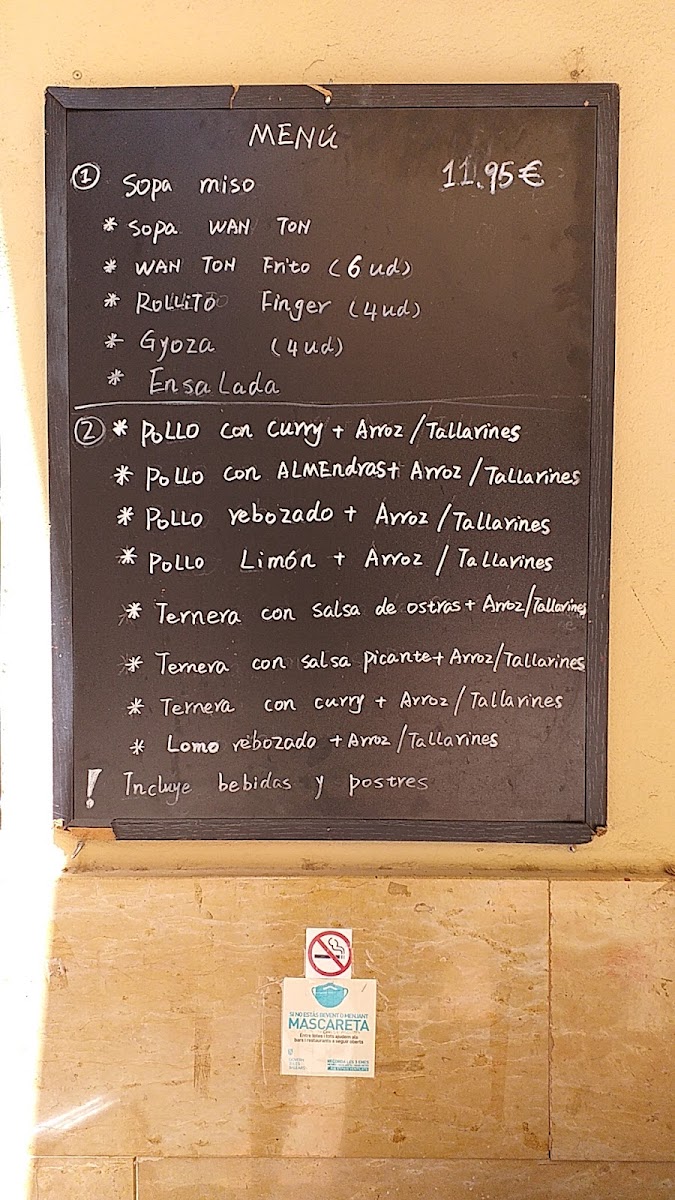 MENÚ
① Sopa miso 11.95€
* Sopa WAN TON
* WAN TON Frito (6 ud)
* ROLLITO Finger (4ud)
* Gyoza (4ud)
* Ensalada
② * POLLO con curry + Arroz/Tallarines
* POLLO con ALMEndras+ Arroz/Tallarines
* POLLO rebozado + Arroz/Tallarines
* POLLO Limón + Arroz/Tallarines
* Ternera con salsa de ostras + Arroz/Tallarines
* Ternera con salsa picante+ Arroz/Tallarines
* Ternera con curry + Arroz/Tallarines
* Lomo rebozado + Arroz/Tallarines
! Incluye bebidas y postres
SI NO ESTÀS BEVENT O MENJANT
MASCARETA
Entre totes i tots ajudem als
bars i restaurants a seguir oberts